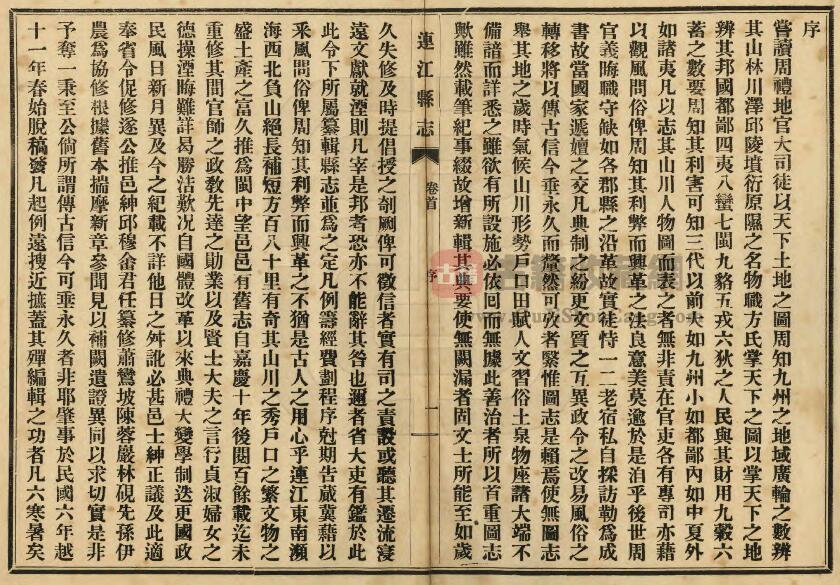 序
嘗讀周禮地官大司徒以天下土地之圖周知九州之地域廣輪之數辨
其山林川澤邱陵墳衍原隰之名物職方氏掌天下之圖以掌天下之地
辨其邦國都鄙四夷八蠻七閩九貉五戎六狄之人民與其財用九穀六
蓄之數要周知其利害可知三代以前大如九州小如都鄙內如中夏外
如諸夷凡以志其山川人物圖而表之者無非責在官吏各有專司亦藉
以觀風問俗俾周知其利弊而興革之法良意美莫逾於是洎乎後世周
官義晦職守缺如各郡縣之沿革故實徒恃一二老宿私自採訪勒為成
書故當國家遞嬗之交凡典制之紛更文質之互異政令之改易風俗之
轉移將以傳古信今垂永久而釐然可攷者繄惟圖志是賴焉使無圖志
舉其地之歲時氣候山川形勢戶口田賦人文習俗土泉物座諸大端不
備諳而詳悉之雖欲有所設施必依回而無據此善治者所以首重圖志
歟雖然載筆紀事綴故增新輯其典要使無闕漏者固文士所能至如歲
連江縣志
卷首
序
一
久失修及時提倡授之剞劂俾可徵信者實有司之責設或聽其遷流寖
遠文獻就湮則凡宰是邦者恐亦不能辭其咎也邇者省大吏有鑑於此
此令下所屬纂輯縣志並為之定凡例籌經費劃程序尅期告蕆冀藉以
釆風問俗俾周知其利弊而興革之不猶是古人之用心乎連江東南瀕
海西北負山絕長補短方百八十里有奇其山川之秀戶口之繁文物之
盛土產之富久推為閩中望邑邑有舊志自嘉慶十年後閱百餘載迄未
重修其間官師之政教先達之勛業以及賢士大夫之言行貞淑婦女之
德操湮晦難詳曷勝沽歎況自國體改革以來典禮大變學制迭更國政
民風日新月異及今之紀載不詳他日之舛訛必甚邑士紳正議及此適
奉省令促修遂公推邑紳邱穆畬君任纂修蕭鸞坡陳蓉嚴林硯先孫伊
農為協修根據舊本揣摩新章參聞見以補闕遺證異同以求切實是非
予奪一秉至公倘所謂傳古信今可垂永久者非耶肇事於民國六年越
十一年春始脫稿發凡起例遠搜近摭蓋其殫編輯之功者凡六寒暑矣